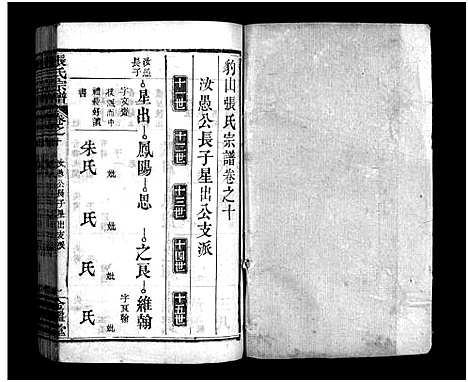 豹山張氏宗譜卷之十
汝愚公長子星出公支派
十一世
十二世
十三世
十四世
十五世
汝愚長子
星出
鳳陽
思
之良
維翰
字文齋
禮義好讀書
字夏翰
妣
朱氏
妣
氏
妣
氏
妣
氏
張氏宗譜
卷之十
汝愚公長子星出支派